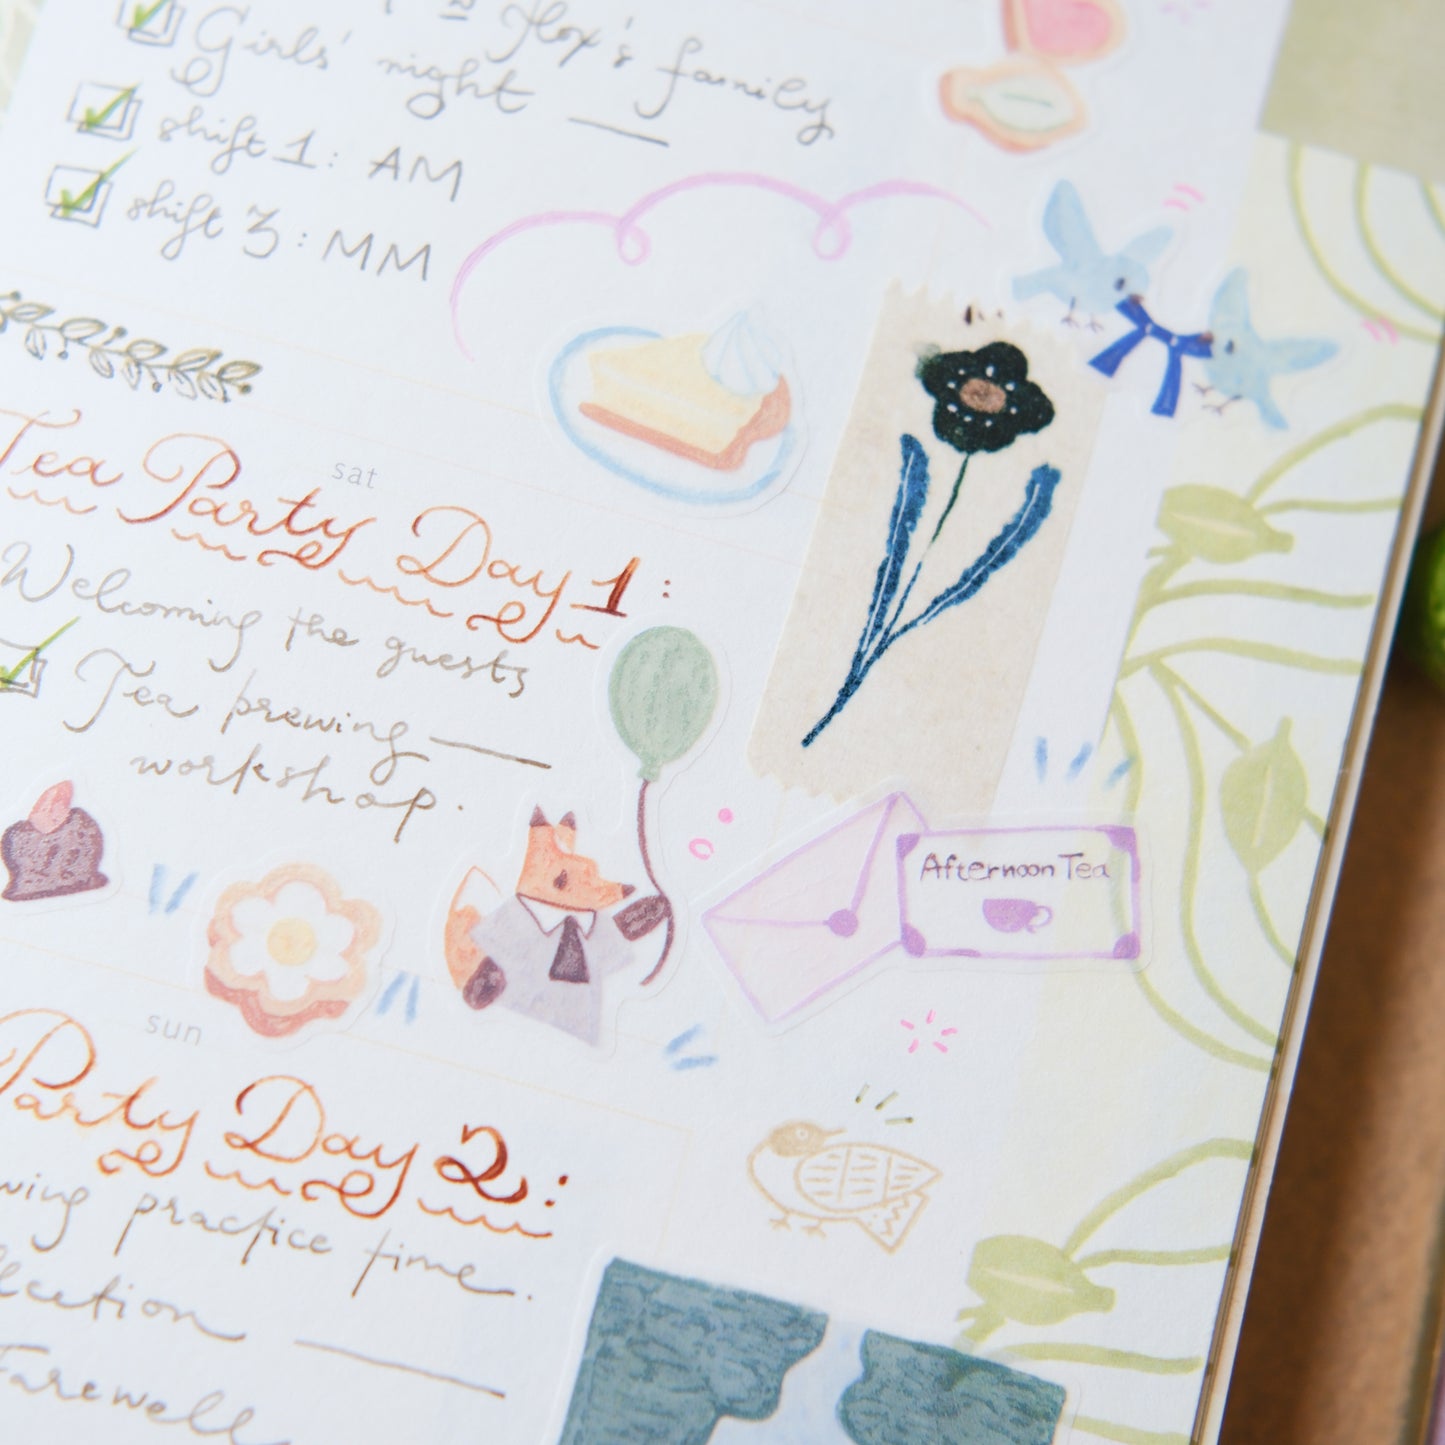 Alex's family
Girls' night
shift 1: AM
shift 3: MM
sat
Tea Party Day 1:
Welcoming the guests
Tea brewing
workshop.
Afternoon Tea
sun
Party Day 2:
practice time.
Farewell